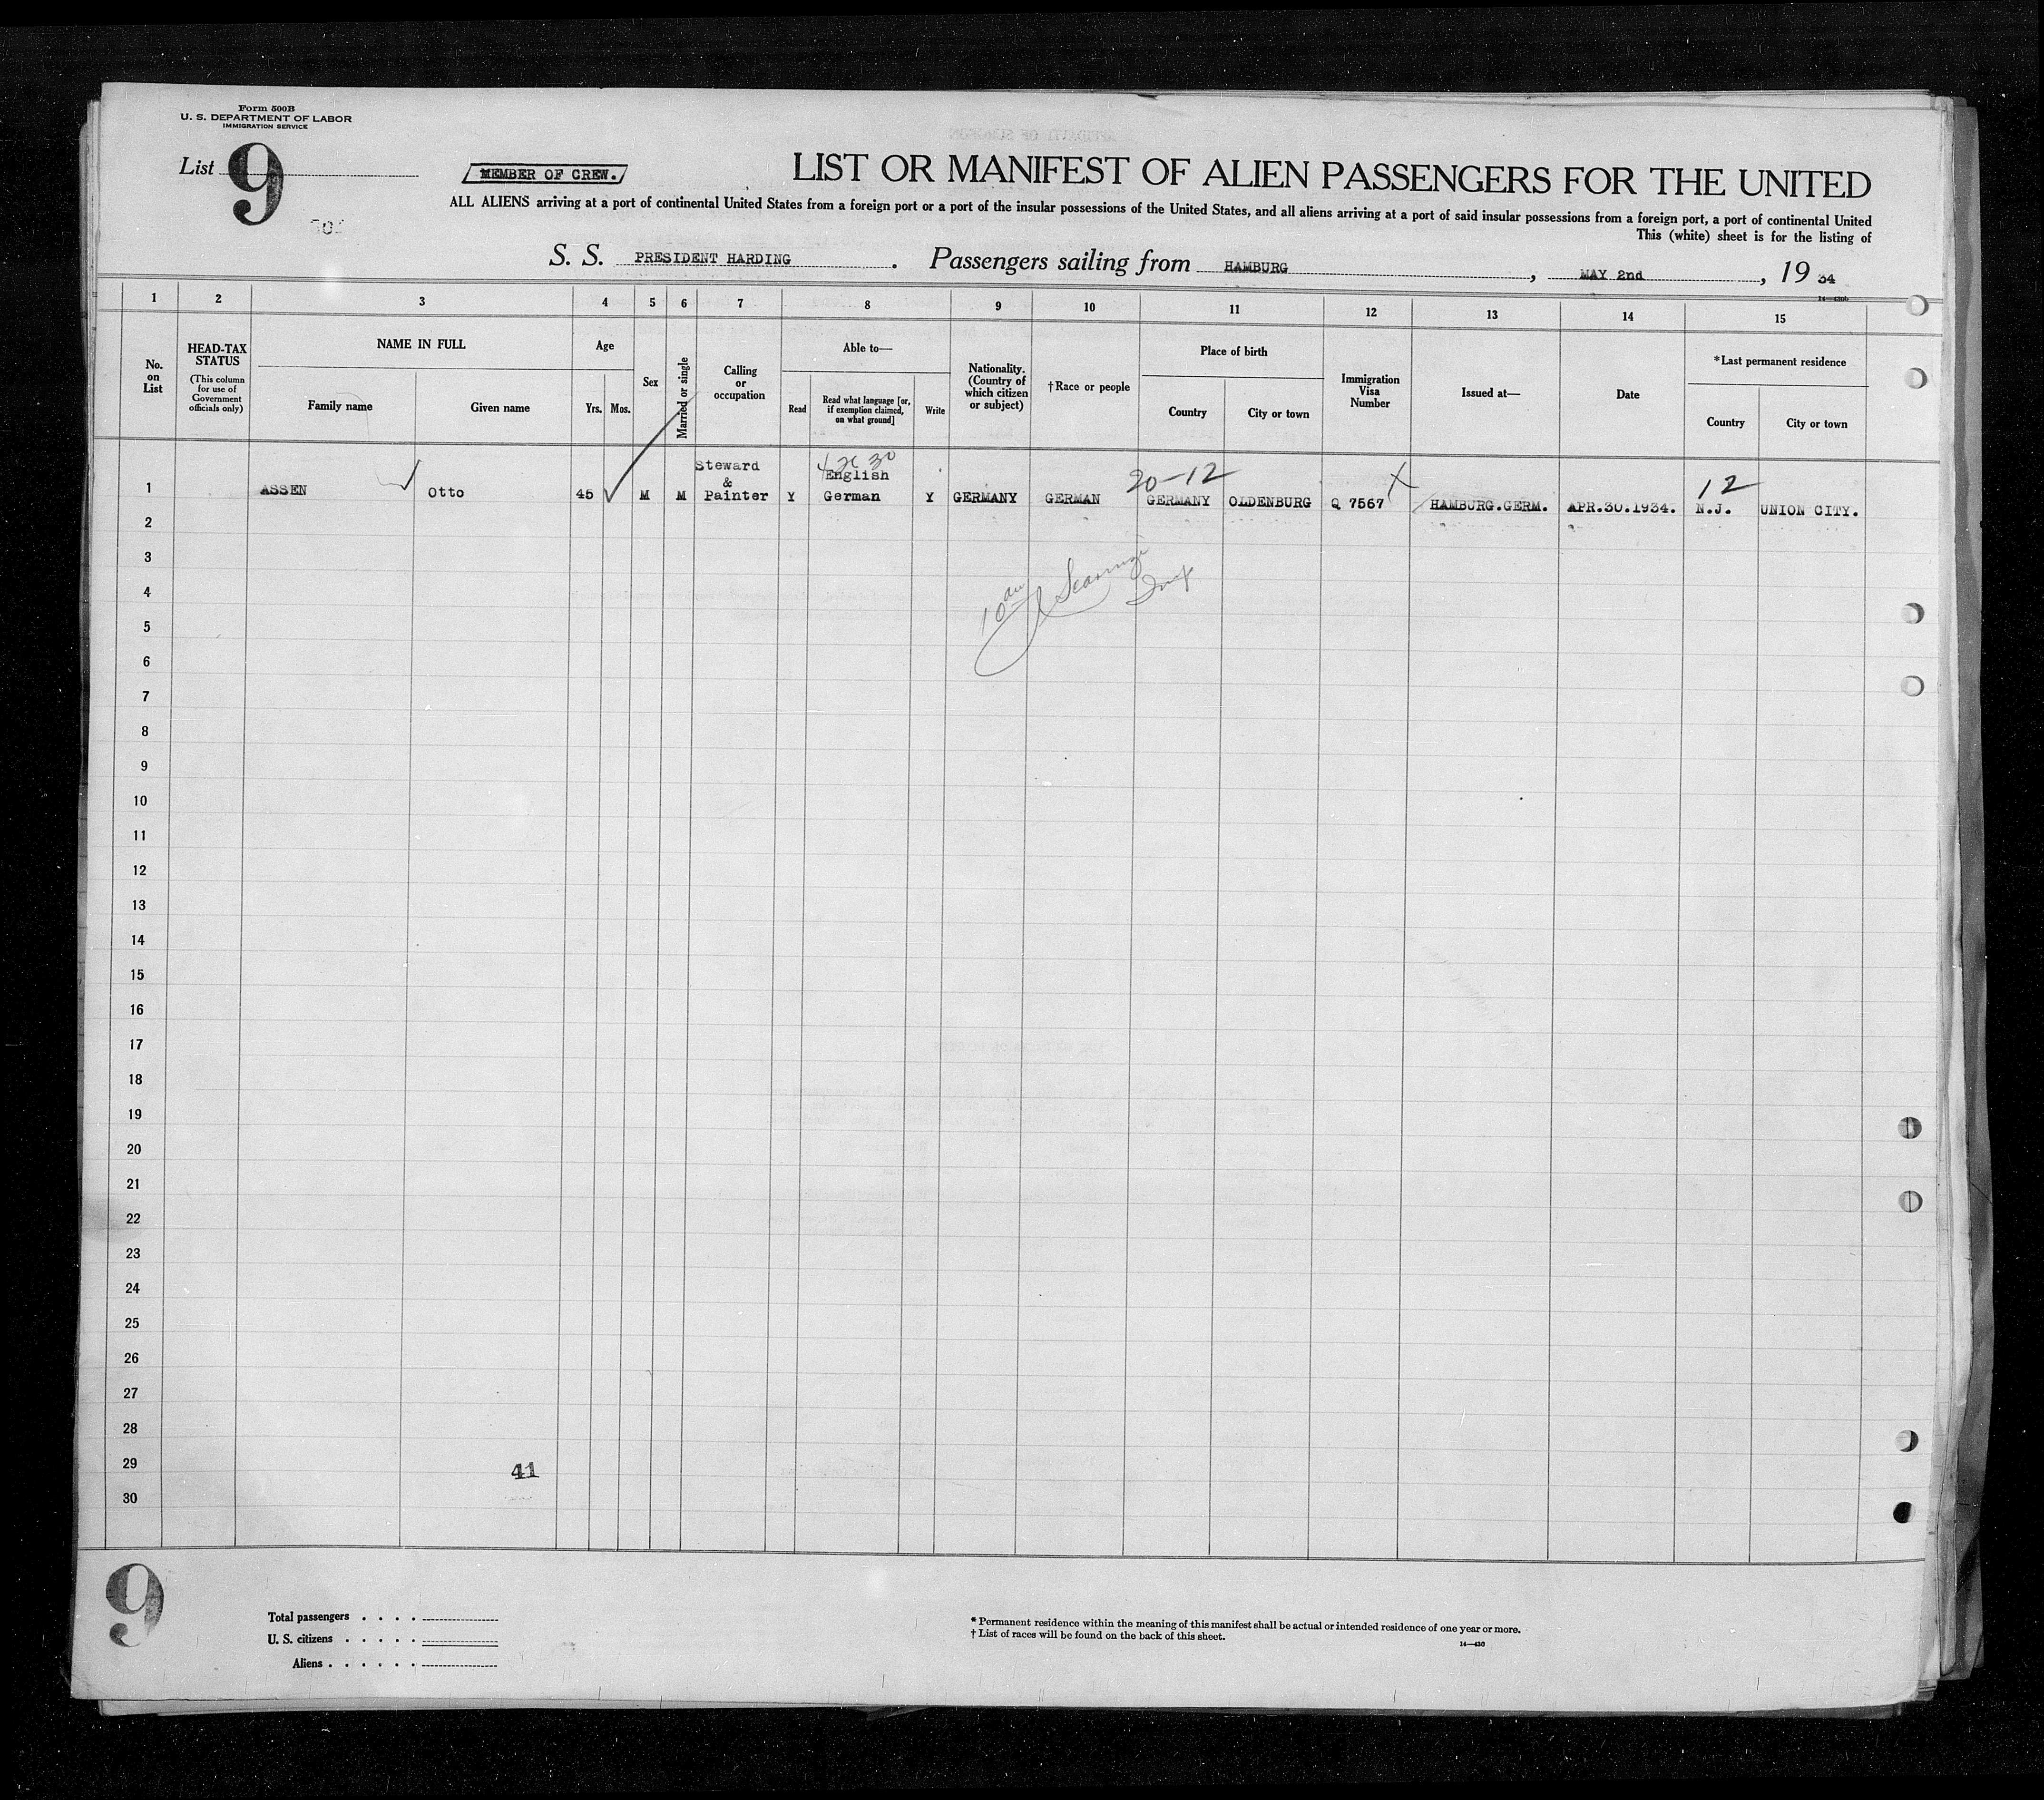 Form 500B
U. S. DEPARTMENT OF LABOR
IMMIGRATION SERVICE
List 9
MEMBER OF CREW.
LIST OR MANIFEST OF ALIEN PASSENGERS FOR THE UNITED
ALL ALIENS arriving at a port of continental United States from a foreign port or a port of the insular possessions of the United States, and all aliens arriving at a port of said insular possessions from a foreign port, a port of continental United
This (white) sheet is for the listing of
S. S. PRESIDENT HARDING . Passengers sailing from HAMBURG , MAY 2nd , 19 34
14—430b
1 2 3 4 5 6 7 8 9 10 11 12 13 14 15
No. on List
HEAD-TAX STATUS
(This column for use of Government officials only)
NAME IN FULL
Family name
Given name
Age
Yrs. Mos.
Sex
Married or single
Calling or occupation
Able to—
Read
Read what language [or, if exemption claimed, on what ground]
Write
Nationality. (Country of which citizen or subject)
†Race or people
Place of birth
Country
City or town
Immigration Visa Number
Issued at—
Date
*Last permanent residence
Country
City or town
1 ASSEN Otto 45 M M Steward & Painter Y English German Y GERMANY GERMAN GERMANY OLDENBURG Q 7567 HAMBURG.GERM. APR.30.1934. N.J. UNION CITY.
20-12
12
2
3
4
10 am
5
6
7
8
9
10
11
12
13
14
15
16
17
18
19
20
21
22
23
24
25
26
27
28
29
41
30
9
Total passengers . . . .
U. S. citizens . . . . .
Aliens . . . . . .
* Permanent residence within the meaning of this manifest shall be actual or intended residence of one year or more.
† List of races will be found on the back of this sheet.
14—430